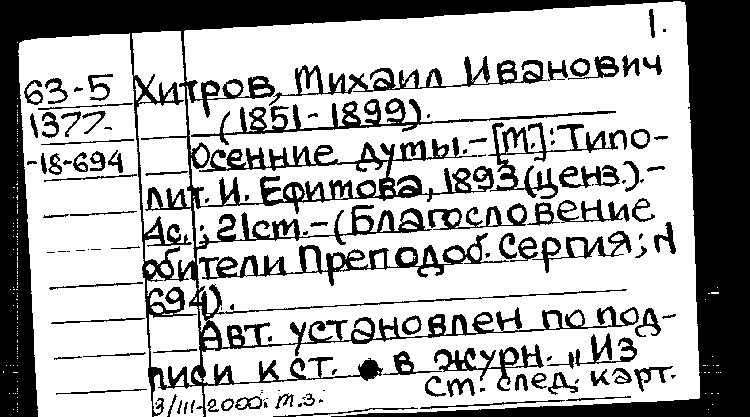 1.
63-5 Хитров, Михаил Иванович
1377 (1851-1899).
-18-694 Осенние думы.-[М.]: Типо-
лит. И. Ефимова, 1893 (ценз.).-
4с.; 21см.-(Благословение
обители Преподоб. Сергия; N
694).
Авт. установлен по под-
писи к ст. в журн. „Из
ст. след. карт.
3/III-2000г. М.З.